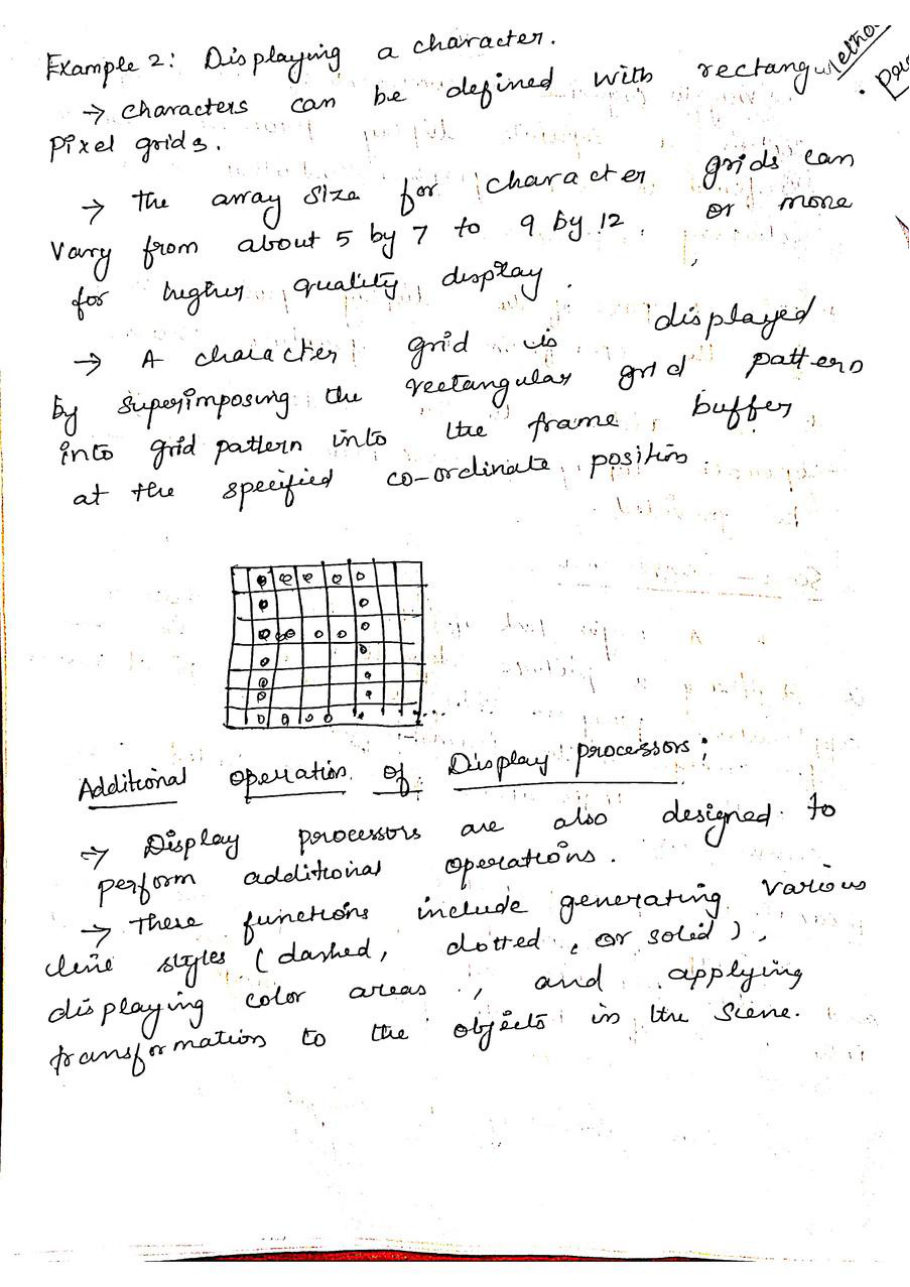 Example 2: Displaying a character.
→ characters can be defined with rectangu
Pixel grids.
→ The array size for character grids can
Vary from about 5 by 7 to 9 by 12 or more
for higher quality display.
→ A character grid is displayed
by superimposing the rectangular grid pattern
into grid pattern into the frame buffer
at the specified co-ordinate position.
Additional operation of Display processors:
→ Display processors are also designed to
perform additional operations.
→ These functions include generating various
line styles (dashed, dotted, or solid),
displaying color areas, and applying
transformation to the objects in the Scene.